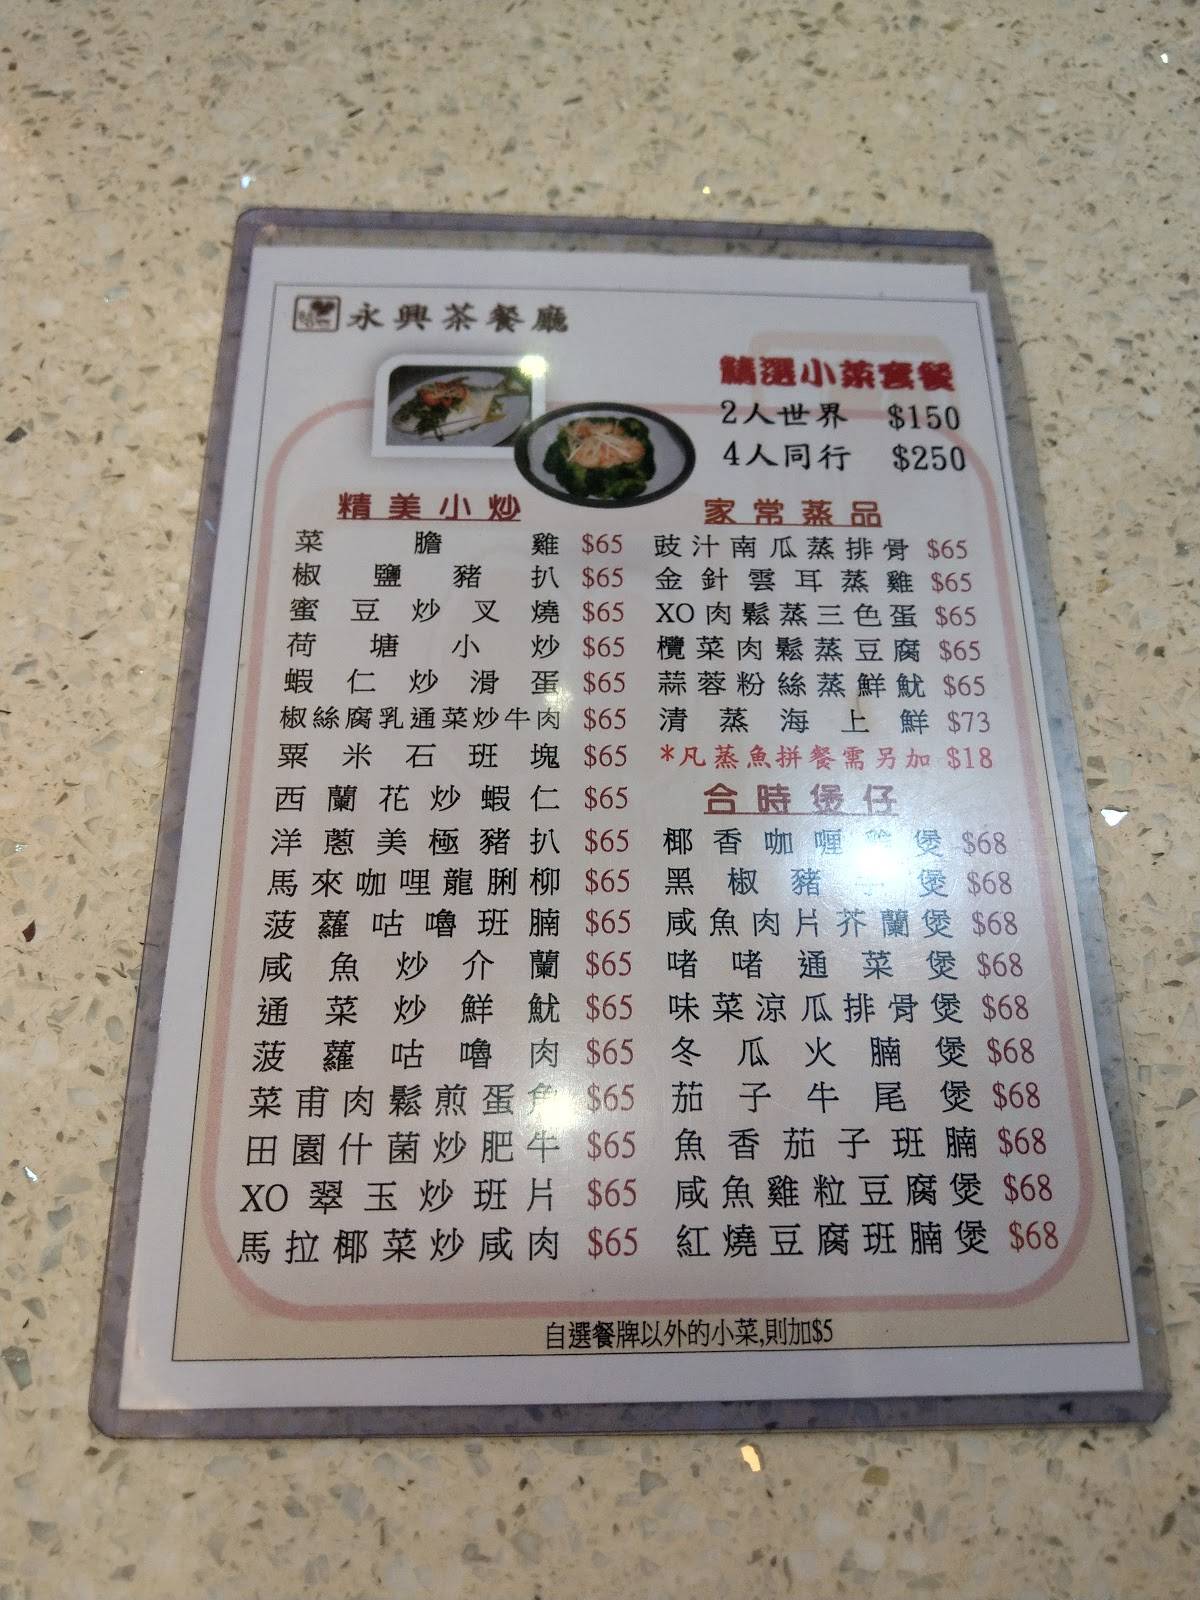 永興茶餐廳
精選小菜套餐
2人世界 $150
4人同行 $250
精美小炒
菜膽雞 $65
椒鹽豬扒 $65
蜜豆炒叉燒 $65
荷塘小炒 $65
蝦仁炒滑蛋 $65
椒絲腐乳通菜炒牛肉 $65
粟米石班塊 $65
西蘭花炒蝦仁 $65
洋蔥美極豬扒 $65
馬來咖哩龍脷柳 $65
菠蘿咕嚕班腩 $65
咸魚炒介蘭 $65
通菜炒鮮魷 $65
菠蘿咕嚕肉 $65
菜甫肉鬆煎蛋角 $65
田園什菌炒肥牛 $65
XO翠玉炒班片 $65
馬拉椰菜炒咸肉 $65
家常蒸品
豉汁南瓜蒸排骨 $65
金針雲耳蒸雞 $65
XO肉鬆蒸三色蛋 $65
欖菜肉鬆蒸豆腐 $65
蒜蓉粉絲蒸鮮魷 $65
清蒸海上鮮 $73
*凡蒸魚拼餐需另加 $18
合時煲仔
椰香咖喱 煲 $68
黑椒豬 煲 $68
咸魚肉片芥蘭煲 $68
啫啫通菜煲 $68
味菜涼瓜排骨煲 $68
冬瓜火腩煲 $68
茄子牛尾煲 $68
魚香茄子班腩 $68
咸魚雞粒豆腐煲 $68
紅燒豆腐班腩煲 $68
自選餐牌以外的小菜,則加$5